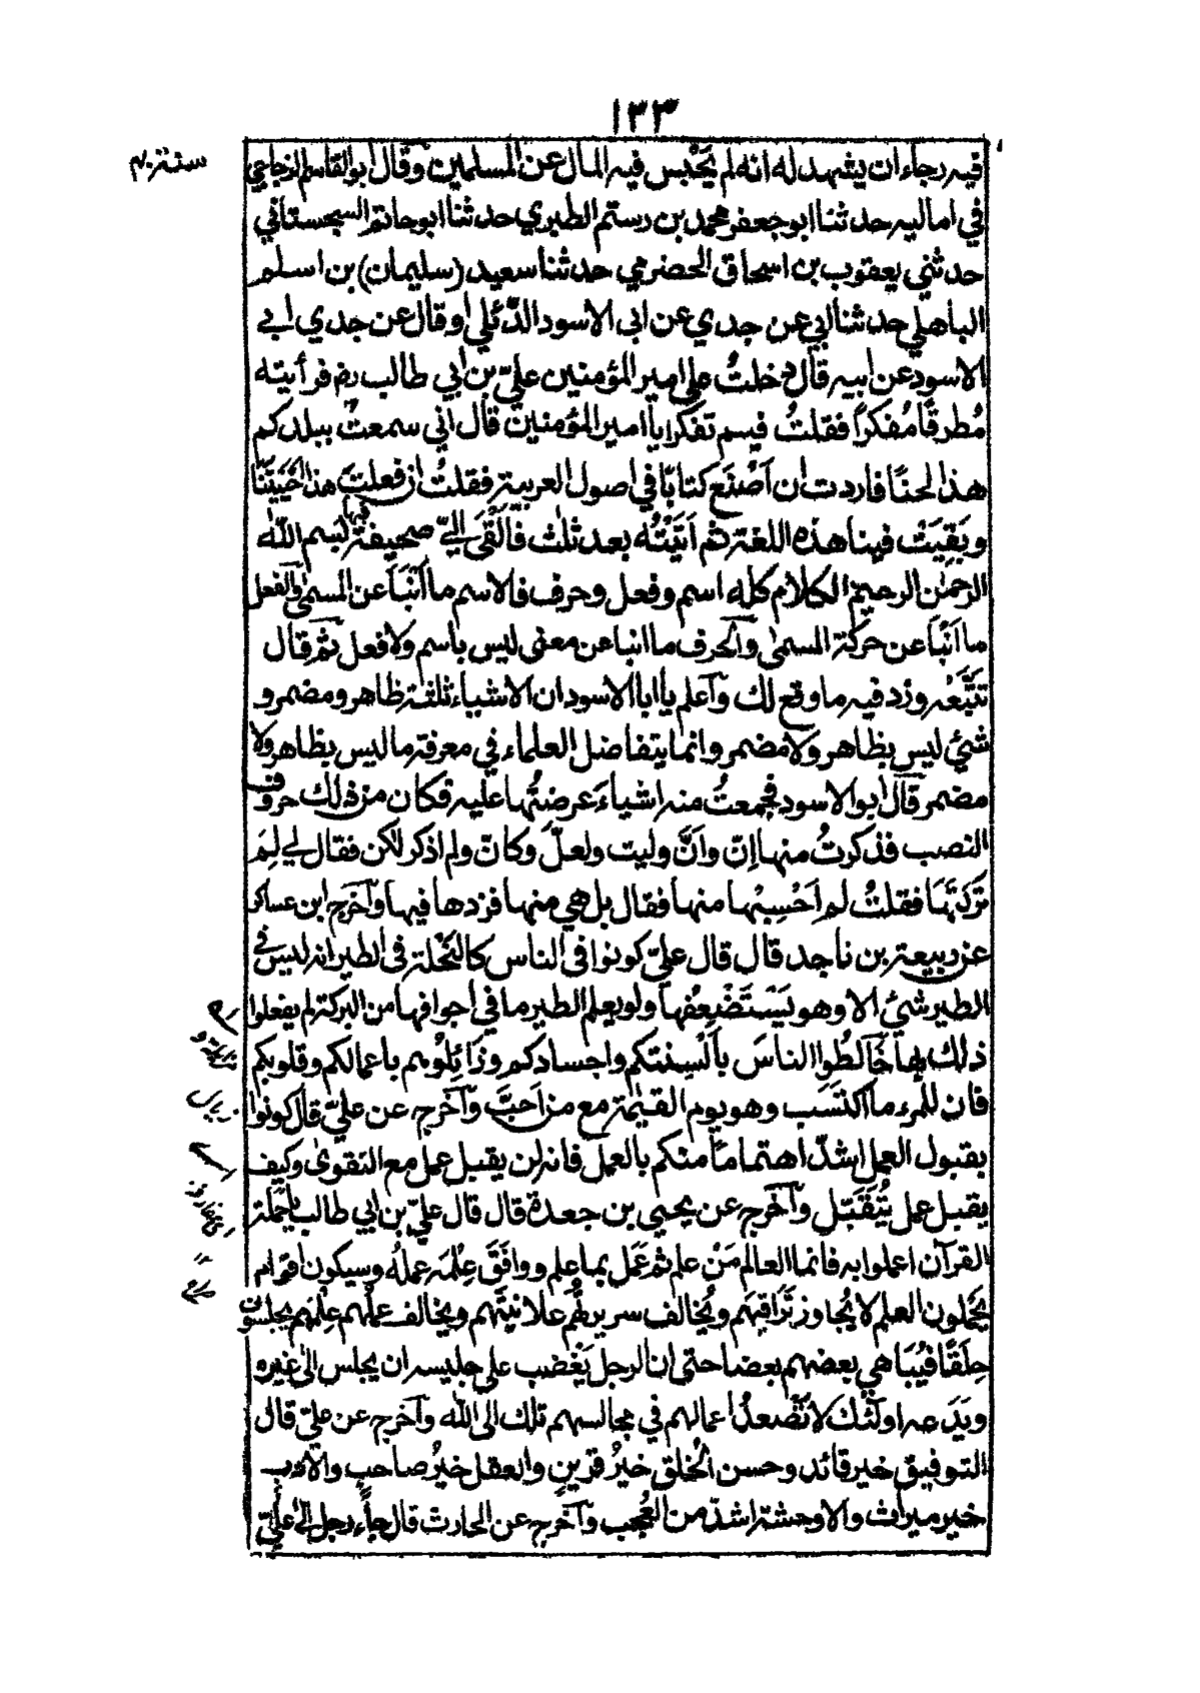 ١٣٣
سنة ٤٠
فيه رجاء ان يشهد له انه لم يَحْبِس فيه المال عن المسلمين وقال ابو القاسم الزجاجي
في اماليه حدثنا ابو جعفر محمد بن رستم الطبري حدثنا ابو حاتم السجستاني
حدثني يعقوب بن اسحاق الحضرمي حدثنا سعيد (سليمان) بن اسلم
الباهلي حدثنا ابي عن جدي عن ابى الاسود الدُّئلي او قال عن جدي ابي
الاسود عن ابيه قال دخلتُ على امير المؤمنين عليّ بن ابي طالب رض فرأيته
مُطرِقًا مُفكرًا فقلتُ فيم تفكر يا امير المؤمنين قال اني سمعتُ ببلدكم
هذا لحنًا فاردت ان اَصْنَع كتابًا في اصول العربية فقلتُ ان فعلتَ هذا اَحْيَيْتَنَا
وبَقِيَتْ فينا هذه اللغة ثم اَتَيْتُه بعد ثلث فاَلْقَى اليّ صحيفة فيها بسم الله
الرحمٰن الرحيم الكلام كله اسم وفعل وحرف فالاسم ما اَنْبَأَ عن المسمىٰ والفعل
ما اَنْبَأَ عن حركة المسمىٰ والحرف ما انبا عن معنى ليس باسم ولا فعل ثم قال
تَتَبَّعْه وزد فيه ما وقع لك وآعلم يا ابا الاسود ان الاشياء ثلثة ظاهر ومضمر و
شيئ ليس بظاهر ولا مضمر وانما يتفاضل العلماء في معرفة ما ليس بظاهر ولا
مضمر قال ابو الاسود فجمعتُ منه اشياءَ عرضتُها عليه فكان من ذلك حروف
النصب فذكرتُ منها اِنّ واَنَّ وليت ولعلّ وكانّ ولم اذكر لٰكن فقال لي لِمَ
تَرَكْتَهَا فقلتُ لم اَحْسِبْها منها فقال بل هي منها فزدها فيها وآخرج ابن عساكر
عن ربيعة بن ناجد قال قال عليّ كونوا فى الناس كالنَّحْلة فى الطير انه ليس فى
الطير شيئ الا وهو يَسْتَضْعِفُها ولو يعلم الطير ما في اجوافها من البركة لم يفعلوا
ذلك بها خَالِطُوا الناسَ بأَلْسِنتكم واجسادكم وزَائِلُوهم باعمالكم وقلوبكم
فان للمرء ما اكتَسَب وهو يوم القيٰمة مع من اَحبَّ وآخرج عن عليّ قال كونوا
بقبول العمل اشدّ اهتمامًا منكم بالعمل فانه لن يقبل عمل مع التقوىٰ وكيف
يقبل عمل يُتَقَبّل وآخرج عن يحيى بن جعدة قال قال عليّ بن ابي طالب يا حَمَلة
القرآن اعملوا به فانما العالم مَنْ علم ثم عَمِل بما علم ووافَقَ عِلْمَه عملُه وسيكون اقوام
يَحْملون العلم لا يُجاوز تَرَاقِيَهم ويُخالف سريرتُهم علانيَتَهم ويخالف عملُهم عِلْمَهم يجلسون
حِلَقًا فيُبَاهي بعضهم بعضا حتى ان الرجل يَغْضب على جليسه ان يجلس الى غيره
ويَدَعه اولٰئك لا تَصْعدُ اعمالهم في مجالسهم تلك الى الله وآخرج عن عليّ قال
التوفيق خير قائد وحسن الخُلق خيرُ قرينٍ والعقل خيرُ صاحبٍ والادب
خير ميراث ولا وحشة اشدّ من العُجب وآخرج عن الحارث قال جاء رجل الىٰ عليّ